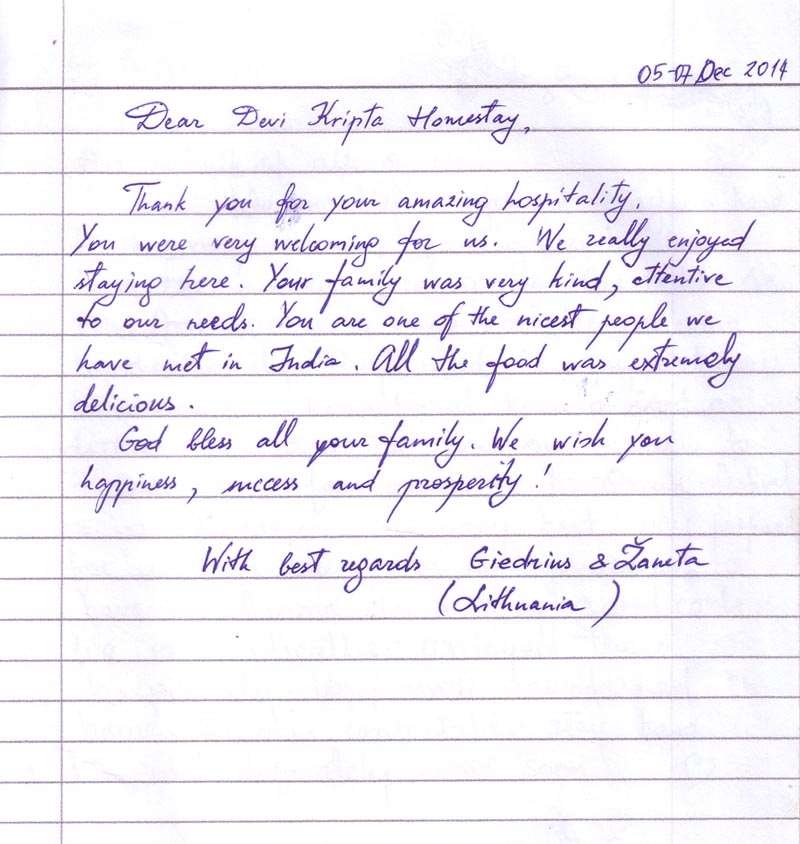 05-07 Dec 2014
Dear Devi Kripta Homestay,
Thank you for your amazing hospitality.
You were very welcoming for us. We really enjoyed
staying here. Your family was very kind, attentive
to our needs. You are one of the nicest people we
have met in India. All the food was extremely
delicious.
God bless all your family. We wish you
happiness, success and prosperity!
With best regards Giedrius & Žaneta
(Lithuania)